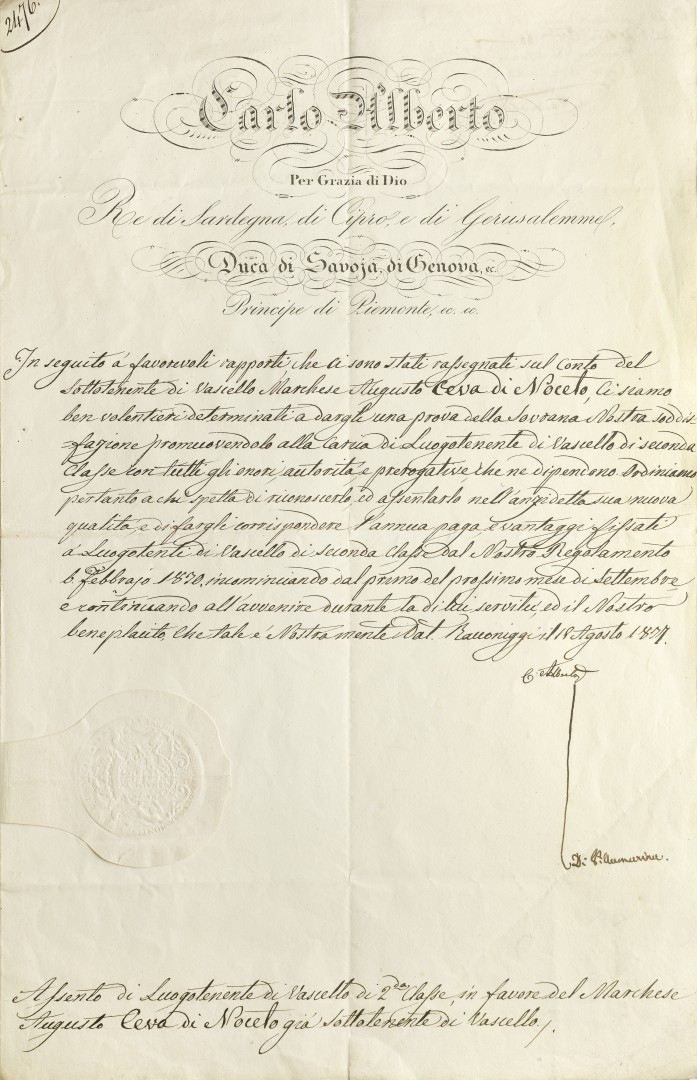 2476.
Carlo Alberto
Per Grazia di Dio
Re di Sardegna, di Cipro, e di Gerusalemme,
Duca di Savoja, di Genova, ec.
Principe di Piemonte, ec. ec.
In seguito a' favorevoli rapporti, che ci sono stati rassegnati sul conto del
Sottotenente di Vascello Marchese Augusto Ceva di Noceto, Ci siamo
ben volentieri determinati a dargli una prova della Sovrana Nostra soddis
=fazione promuovendolo alla carica di Luogotenente di Vascello di seconda
Classe con tutti gli onori, autorità, e prerogative, che ne dipendono. Ordiniamo
pertanto a chi spetta di riconoscerlo, ed assentarlo nell'anzidetta sua nuova
qualità, e di fargli corrispondere l'annua paga, e vantaggi fissati
a' Luogotenti di Vascello di seconda Classe dal Nostro Regolamento
6 Febbrajo, incominciando dal primo del prossimo mese di Settembre,
e continuando all'avvenire durante la di lui servitù, ed il Nostro
beneplacito. Che tale è Nostra mente. Dat. Racconiggi il 18 Agosto
C. Alberto
Di Villamarina.
Assento di Luogotenente di Vascello di 2.da Classe, in favore del Marchese
Augusto Ceva di Noceto già Sottotenente di Vascello,.